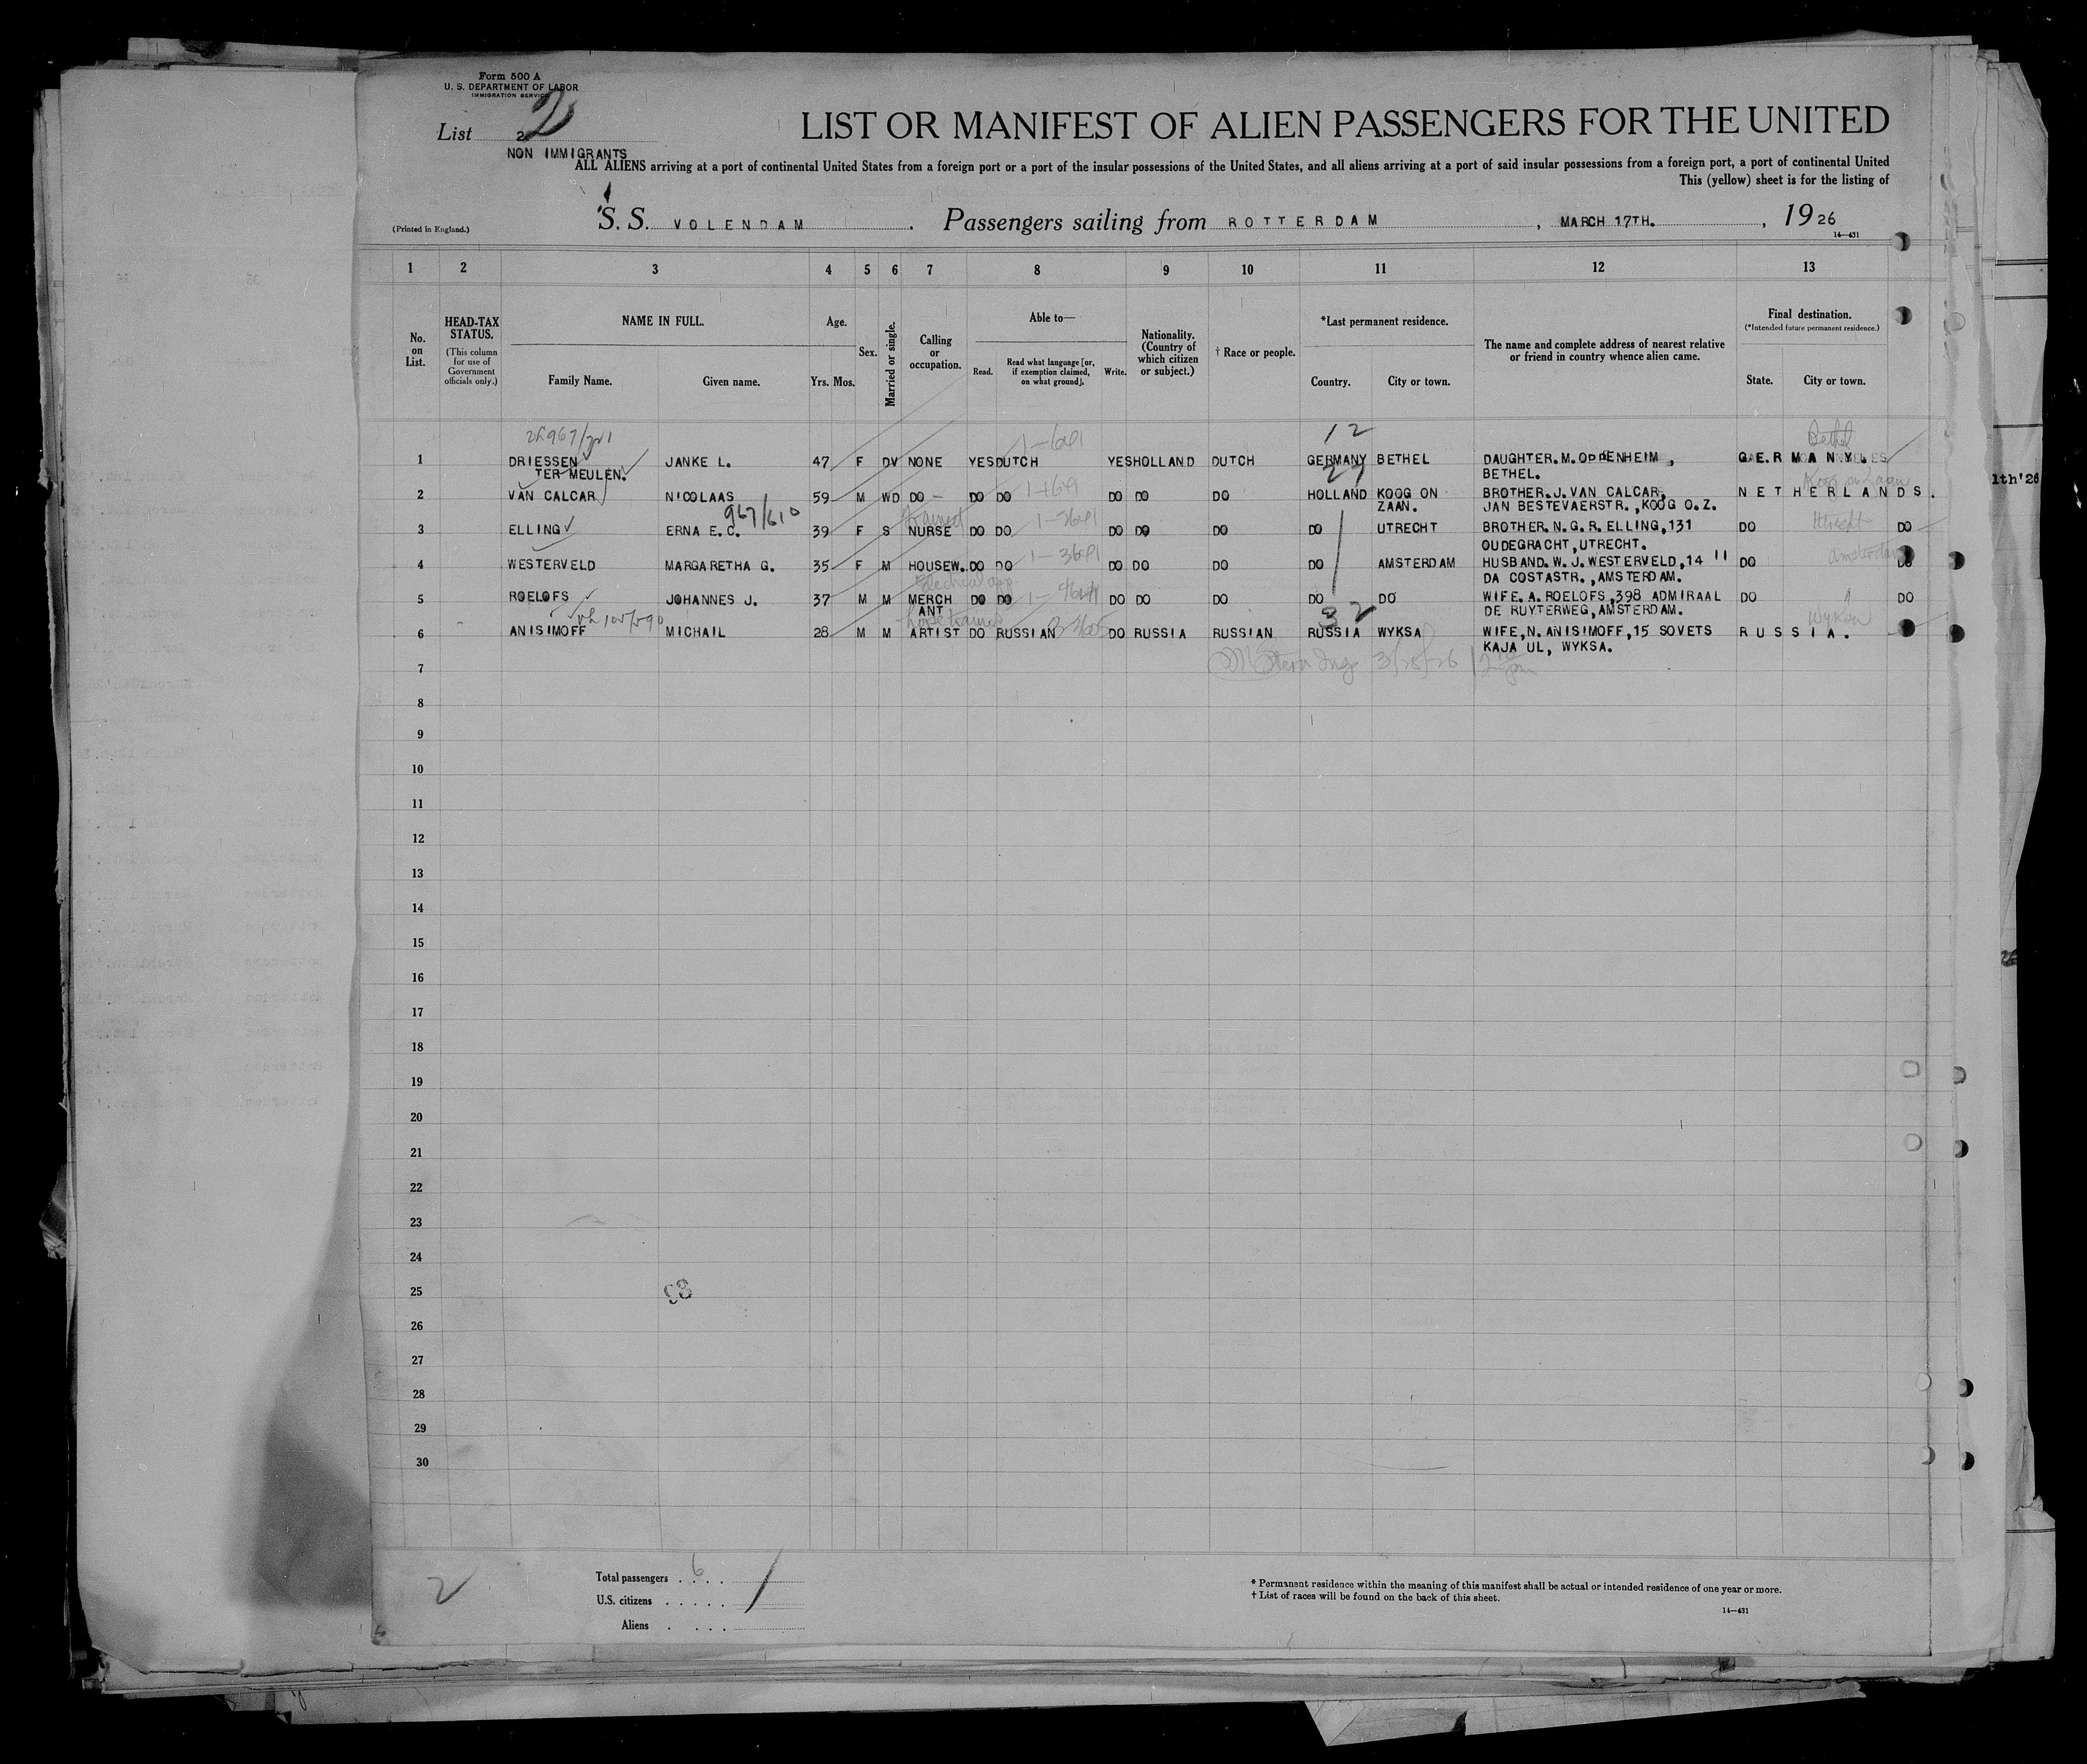 Form 500 A
U. S. DEPARTMENT OF LABOR
IMMIGRATION SERVICE
List 2
NON IMMIGRANTS
LIST OR MANIFEST OF ALIEN PASSENGERS FOR THE UNITED
ALL ALIENS arriving at a port of continental United States from a foreign port or a port of the insular possessions of the United States, and all aliens arriving at a port of said insular possessions from a foreign port, a port of continental United
This (yellow) sheet is for the listing of
(Printed in England.)
S. S. VOLENDAM . Passengers sailing from ROTTERDAM , MARCH 17TH. , 19 26
14—431
1 2 3 4 5 6 7 8 9 10 11 12 13
No. on List.
HEAD-TAX STATUS.
(This column for use of Government officials only.)
NAME IN FULL.
Family Name. Given name.
Age.
Yrs. Mos.
Sex.
Married or single.
Calling or occupation.
Able to—
Read. Read what language [or, if exemption claimed, on what ground]. Write.
Nationality. (Country of which citizen or subject.)
† Race or people.
*Last permanent residence.
Country. City or town.
The name and complete address of nearest relative or friend in country whence alien came.
Final destination.
(*Intended future permanent residence.)
State. City or town.
12 Bethel
1 DRIESSEN JANKE L. 47 F DV NONE YES DUTCH YES HOLLAND DUTCH GERMANY BETHEL DAUGHTER.M.OPPENHEIM , GERMANY.
TER MEULEN. BETHEL.
27
2 VAN CALCAR NICOLAAS 59 M WD DO DO DO DO DO DO HOLLAND KOOG ON BROTHER.J.VAN CALCAR, NETHERLANDS.
967/610 ZAAN. JAN BESTEVAERSTR.,KOOG O.Z.
3 ELLING ERNA E.C. 39 F S NURSE DO DO DO DO DO DO UTRECHT BROTHER.N.G.R.ELLING,131 DO Utrecht DO
OUDEGRACHT,UTRECHT.
4 WESTERVELD MARGARETHA G. 35 F M HOUSEW. DO DO DO DO DO DO AMSTERDAM HUSBAND.W.J.WESTERVELD,14 II DO Amsterdam DO
DA COSTASTR.,AMSTERDAM.
5 ROELOFS JOHANNES J. 37 M M MERCH DO DO DO DO DO DO DO WIFE.A.ROELOFS,398 ADMIRAAL DO DO
ANT DE RUYTERWEG,AMSTERDAM.
32 Wyksa
6 ANISIMOFF MICHAIL 28 M M ARTIST DO RUSSIAN DO RUSSIA RUSSIAN RUSSIA WYKSA WIFE,N.ANISIMOFF,15 SOVETS RUSSIA.
KAJA UL, WYKSA.
7
8
9
10
11
12
13
14
15
16
17
18
19
20
21
22
23
24
25
26
27
28
29
30
2
Total passengers . . . . 6
U.S. citizens . . . . .
Aliens . . . .
* Permanent residence within the meaning of this manifest shall be actual or intended residence of one year or more.
† List of races will be found on the back of this sheet.
14—431
1th'26